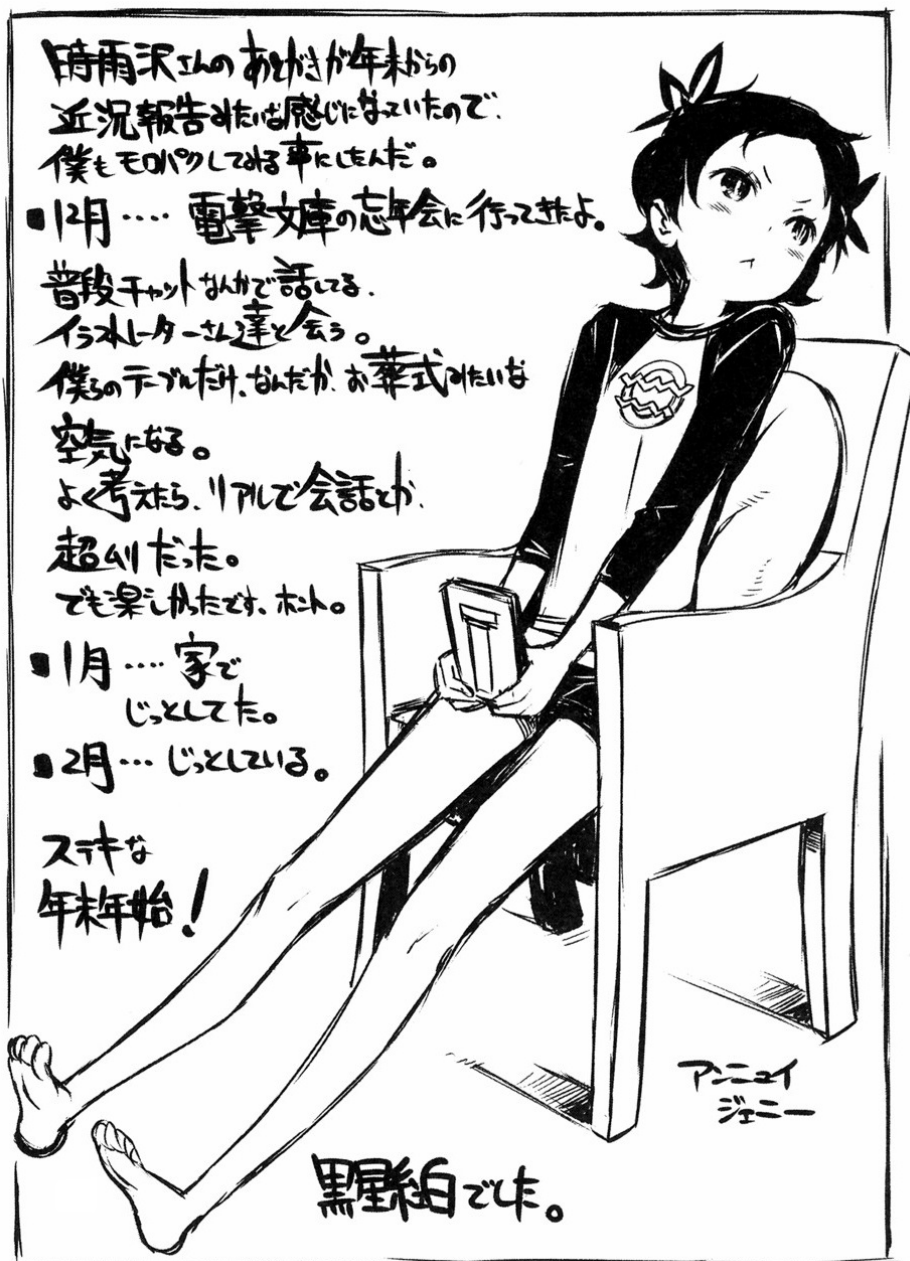 時雨沢さんのあとがきが年末からの
近況報告みたいな感じになっていたので、
僕もモロパクしてみる事にしたんだ。
■12月‥‥電撃文庫の忘年会に行ってきたよ。
普段チャットなんかで話してる、
イラストレーターさん達と会う。
僕らのテーブルだけ、なんだか、お葬式みたいな
空気になる。
よく考えたら、リアルで会話とか、
超ムリだった。
でも楽しかったです、ホント。
■1月‥‥家で
じっとしてた。
■2月…じっとしている。
ステキな
年末年始!
アンニュイ
ジェニー
黒星紅白でした。